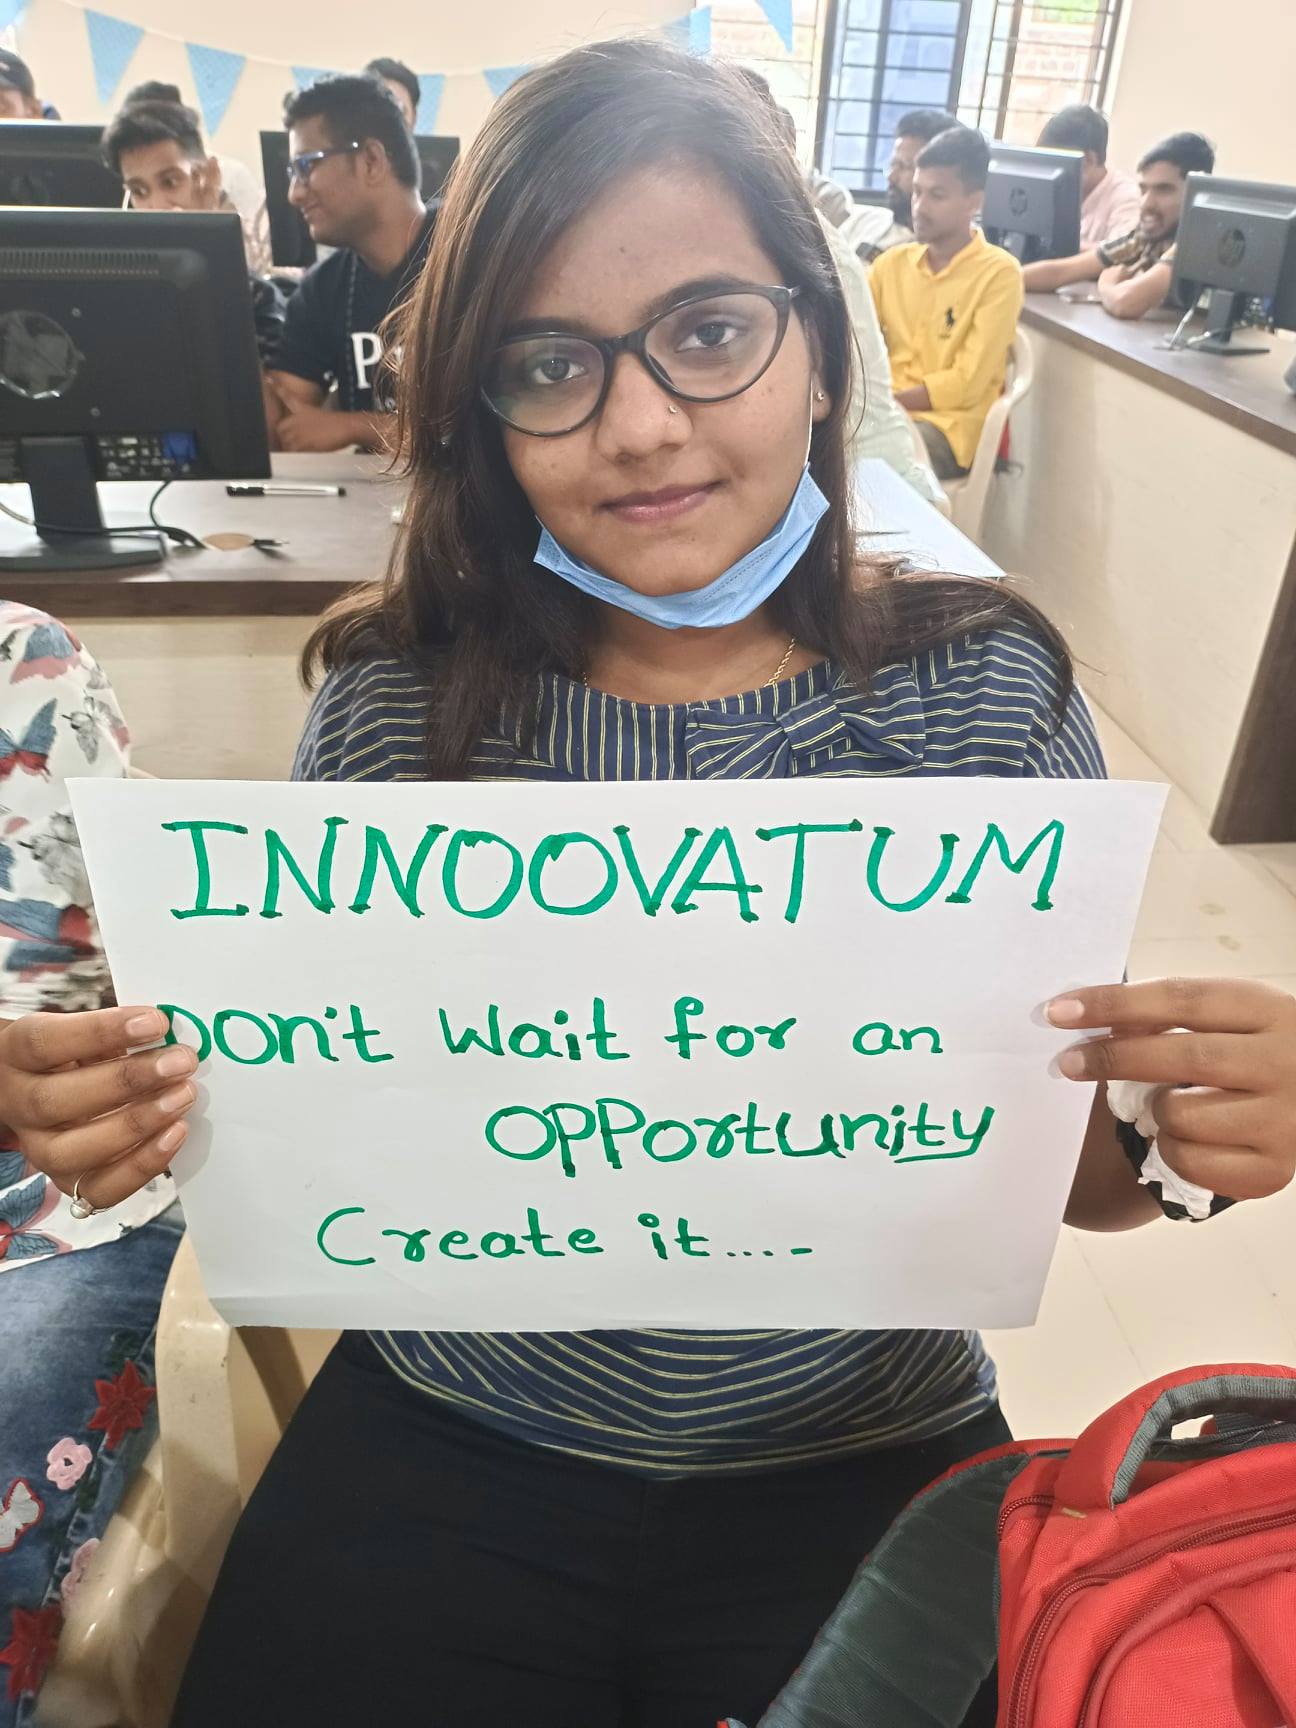 INNOOVATUM
DON't Wait for an
OPPortunity
Create it....-